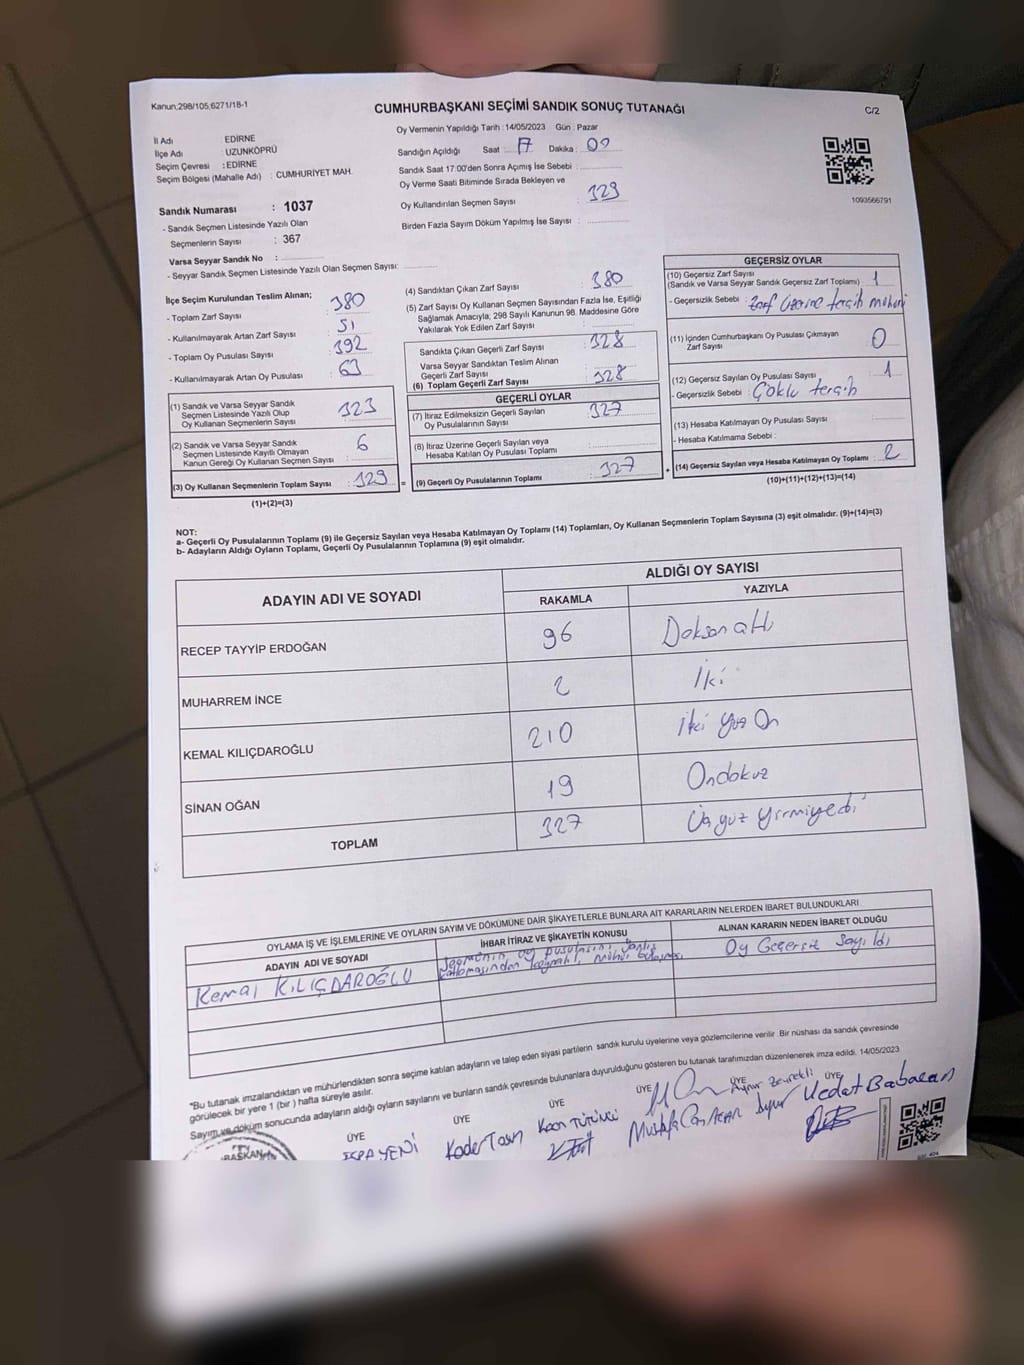 Kanun;298/105;6271/18-1
CUMHURBAŞKANI SEÇİMİ SANDIK SONUÇ TUTANAĞI
C/2
İl Adı EDİRNE
İlçe Adı : UZUNKÖPRÜ
Seçim Çevresi : EDİRNE
Seçim Bölgesi (Mahalle Adı) : CUMHURİYET MAH.
Sandık Numarası : 1037
- Sandık Seçmen Listesinde Yazılı Olan
Seçmenlerin Sayısı : 367
Varsa Seyyar Sandık No :
- Seyyar Sandık Seçmen Listesinde Yazılı Olan Seçmen Sayısı:
Oy Vermenin Yapıldığı Tarih : 14/05/2023 Gün : Pazar
Sandığın Açıldığı Saat : 17 Dakika : 09
Sandık Saat 17:00'den Sonra Açımış İse Sebebi :
Oy Verme Saati Bitiminde Sırada Bekleyen ve
Oy Kullandırılan Seçmen Sayısı : 329
Birden Fazla Sayım Döküm Yapılmış İse Sayısı :
1093566791
İlçe Seçim Kurulundan Teslim Alınan;
- Toplam Zarf Sayısı : 380
- Kullanılmayarak Artan Zarf Sayısı : 51
- Toplam Oy Pusulası Sayısı : 392
- Kullanılmayarak Artan Oy Pusulası : 63
(1) Sandık ve Varsa Seyyar Sandık
Seçmen Listesinde Yazılı Olup
Oy Kullanan Seçmenlerin Sayısı : 323
(2) Sandık ve Varsa Seyyar Sandık
Seçmen Listesinde Kayıtlı Olmayan
Kanun Gereği Oy Kullanan Seçmen Sayısı : 6
(3) Oy Kullanan Seçmenlerin Toplam Sayısı : 329 =
(1)+(2)=(3)
(4) Sandıktan Çıkan Zarf Sayısı : 380
(5) Zarf Sayısı Oy Kullanan Seçmen Sayısından Fazla İse, Eşitliği
Sağlamak Amacıyla; 298 Sayılı Kanunun 98. Maddesine Göre
Yakılarak Yok Edilen Zarf Sayısı :
Sandıkta Çıkan Geçerli Zarf Sayısı : 328
Varsa Seyyar Sandıktan Teslim Alınan
Geçerli Zarf Sayısı :
(6) Toplam Geçerli Zarf Sayısı : 328
GEÇERLİ OYLAR
(7) İtiraz Edilmeksizin Geçerli Sayılan
Oy Pusulalarının Sayısı : 327
(8) İtiraz Üzerine Geçerli Sayılan veya
Hesaba Katılan Oy Pusulası Toplamı :
(9) Geçerli Oy Pusulalarının Toplamı : 327 +
GEÇERSİZ OYLAR
(10) Geçersiz Zarf Sayısı
(Sandık ve Varsa Seyyar Sandık Geçersiz Zarf Toplamı) : 1
- Geçersizlik Sebebi : Zarf üzerine tercih mührü
(11) İçinden Cumhurbaşkanı Oy Pusulası Çıkmayan
Zarf Sayısı : 0
(12) Geçersiz Sayılan Oy Pusulası Sayısı : 1
- Geçersizlik Sebebi : Çoklu tercih
(13) Hesaba Katılmayan Oy Pusulası Sayısı :
- Hesaba Katılmama Sebebi :
(14) Geçersiz Sayılan veya Hesaba Katılmayan Oy Toplamı : 2
(10)+(11)+(12)+(13)=(14)
NOT:
a- Geçerli Oy Pusulalarının Toplamı (9) ile Geçersiz Sayılan veya Hesaba Katılmayan Oy Toplamı (14) Toplamları, Oy Kullanan Seçmenlerin Toplam Sayısına (3) eşit olmalıdır. (9)+(14)=(3)
b- Adayların Aldığı Oyların Toplamı, Geçerli Oy Pusulalarının Toplamına (9) eşit olmalıdır.
ADAYIN ADI VE SOYADI ALDIĞI OY SAYISI
RAKAMLA YAZIYLA
RECEP TAYYİP ERDOĞAN 96 Doksanaltı
MUHARREM İNCE 2 İki
KEMAL KILIÇDAROĞLU 210 iki yüz On
SİNAN OĞAN 19 Ondokuz
TOPLAM 327 Üçyüz yirmiyedi
OYLAMA İŞ VE İŞLEMLERİNE VE OYLARIN SAYIM VE DÖKÜMÜNE DAİR ŞİKAYETLERLE BUNLARA AİT KARARLARIN NELERDEN İBARET BULUNDUKLARI
ADAYIN ADI VE SOYADI İHBAR İTİRAZ VE ŞİKAYETİN KONUSU ALINAN KARARIN NEDEN İBARET OLDUĞU
Kemal KILIÇDAROĞLU Seçmenin oy pusulasını yanlış Oy Geçersiz Sayıldı
katlamasından kaynaklı mühür bulaşması
"Bu tutanak imzalandıktan ve mühürlendikten sonra seçime katılan adayların ve talep eden siyasi partilerin sandık kurulu üyelerine veya gözlemcilerine verilir. Bir nüshası da sandık çevresinde
görülecek bir yere 1 (bir) hafta süreyle asılır.
Sayım ve döküm sonucunda adayların aldığı oyların sayılarını ve bunların sandık çevresinde bulunanlara duyurulduğunu gösteren bu tutanak tarafımızdan düzenlenerek imza edildi. 14/05/2023
ÜYE ÜYE ÜYE ÜYE ÜYE ÜYE
BAŞKAN YENİ Kader Kaan Mustafa Can Aynur Vedat Babacan